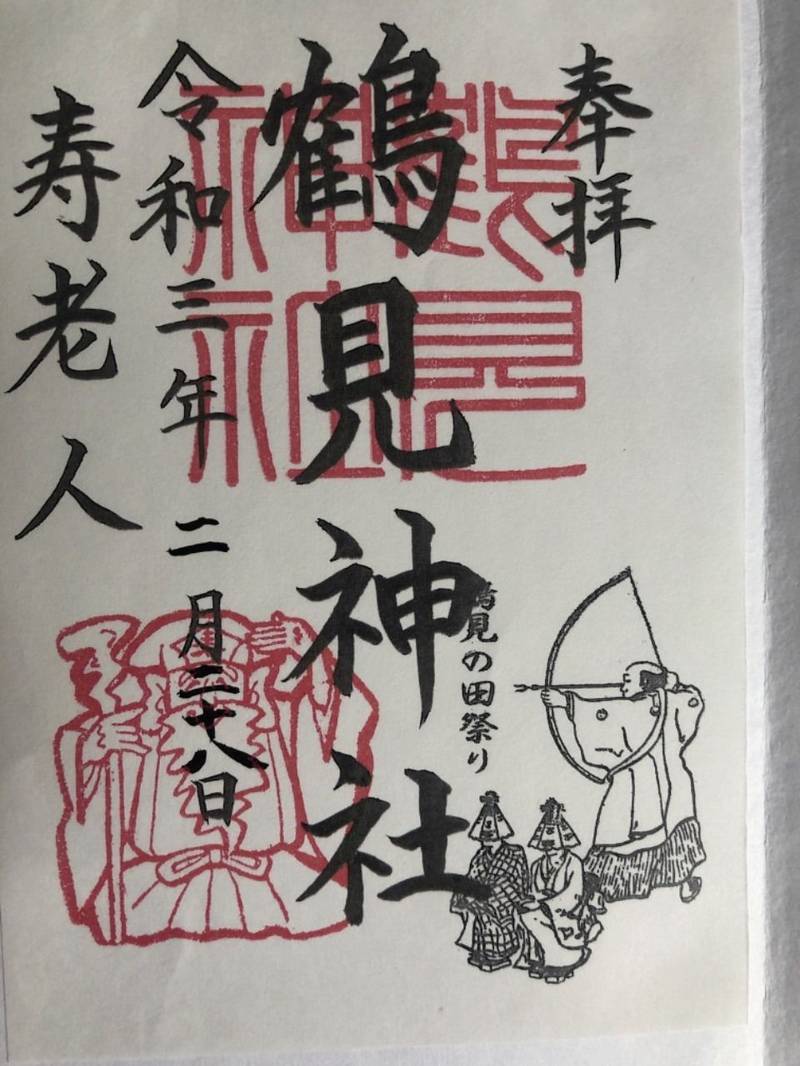 奉拝
鶴見神社
鶴見の田祭り
令和三年二月二十八日
寿老人
鶴見
神社